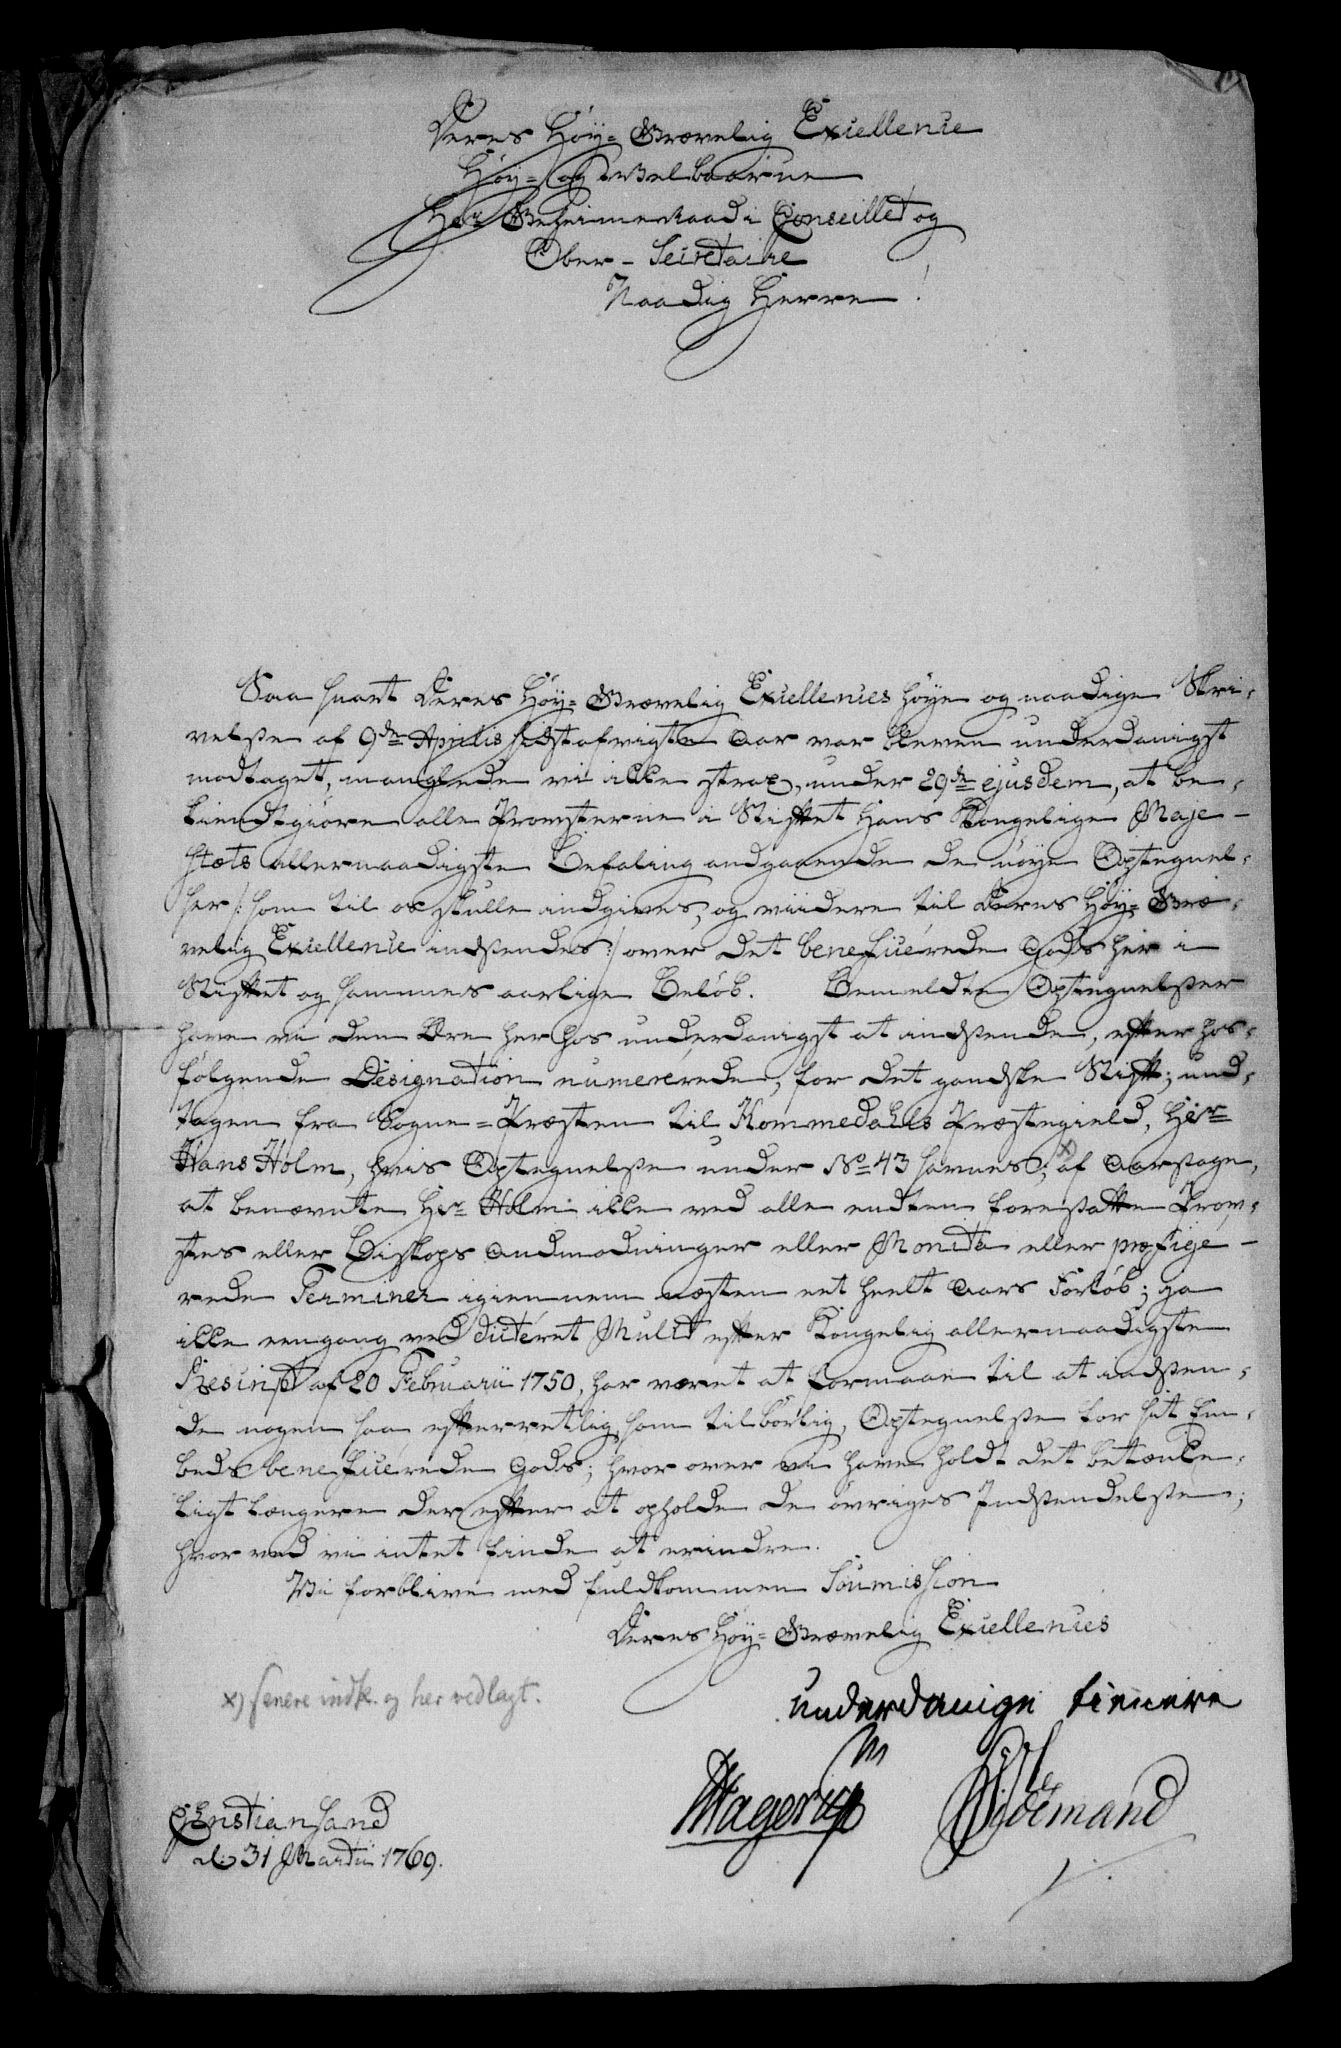 Deres Høy-Grævelig Excellence
Høy- og Velbaarne
Her Geheime Raad i Conseillet og
Ober-Secretaire
Naadig Herre!
Saa snart Deres Høy-Grævelig Excellences høye og naadige Skri-
velse af 9de Aprilis sidstafvigte Aar var bleven underdanigst
modtaget, manglede vi icke strax, under 29de ejusdem, at be-
kiendtgiøre alle Provsterne i Stiftet Hans Kongelige Maje-
stæts allernaadigste Befaling andgaaende de nøye Optegnel-
ser /: som til os skulle indgives, og viidere til Deres Høy-Græ-
velig Excellence indsendes :/ over det beneficerede Gods her i
Stiftet og sammes aarlige Beløb. Bemeldte Optegnelser
have vi den Ære her hos underdanigst at indsende, efter hos-
følgende Designation numererede, for det gandske Stift; und-
tagen fra Sogne-Præsten til Hommedahls Præstegield, Her
Hans Holm, hvis Optegnelse under No 43 savnes x); af Aarsage,
at benævnte Hr Holm icke ved alle endten foresatte Prov-
stes eller Biskops Andmodninger eller Monita eller præfige-
rede Terminer igiennem næsten eet heelt Aars Forløb; ja
icke eengang ved dicteret Mulct efter Kongelig allernaadigste
Rescript af 20 Februarii 1750, har været at formaae til at indsen-
de nogen saa efterretlig, som tilbørlig, Optegnelse for sit Em-
beds beneficerede Gods; hvor over vi have holdt det betænke-
ligt længere der efter at opholde de øvriges Indsendelse;
hvor ved vi intet finde at erindre.
Vi forblive med fuldkommen Soumission
Deres Høy-Grævelig Excellences
x) senere indk. og her vedlagt.
underdanige tienere
Hagerup
Christiansand
d. 31 Martii 1769.